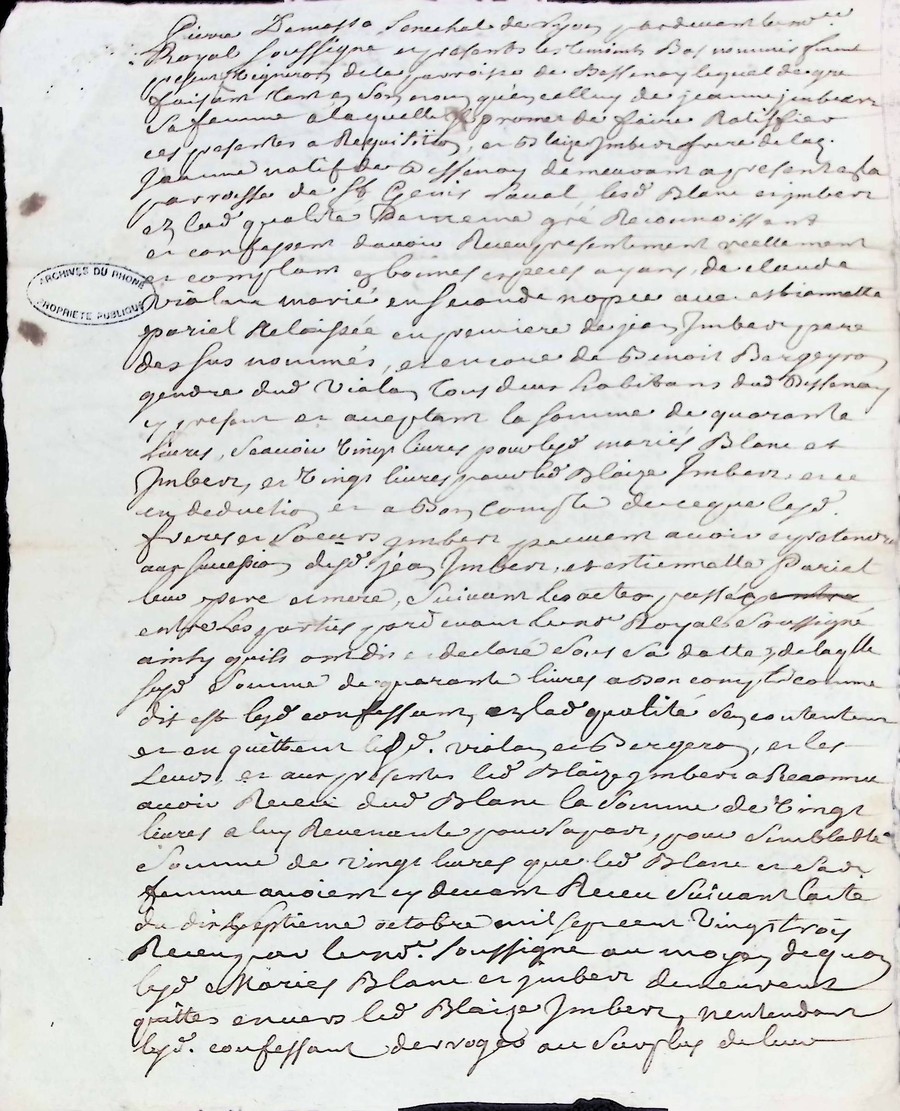 Pierre Demassa Senechal de Lyon pardevant le no.re
Royal Soussigne et presents les temoins Bas nommés furent
present vigneron de la parroisse de Bessenay lequel de gre
faisant tant en Son nom qu'en celluy de jeanne jmbert
Sa femme a laquelle promet de faire Ratiffier
ces presentes a Requisition, et Blaize Jmbert frere de lad.
Jeanne natif de Bessenay demeurant a present a la
parroisse de St Genis Laval lesd Blanc et jmbert
et lesd qualité De meme gré Reconnoissent
et confessent davoir Receu presentement reellement
et comptant en bonnes especes ayans, de claude
Violan marié en seconde nopce avec estiennette
pariel Relaissée en premiere de jean Jmbert pere
des sus nommés, et encore de Benoit Bergeyron
gendre dud Violan tous deux habitans dud Bessenay
cy present et acceptant la somme de quarante
Livres, Scavoir Vingt livres pour lesd mariés Blanc et
Jmbert, et Vingt livres pour led Blaize Jmbert, et ce
en deduction et a Bon compte de ce que lesd.
freres et Soeurs jmbert peuvent avoir et pretendre
aux succession desd. jean Jmbert, et estiennette Pariel
leur pere et mere, Suivant les actes passé
entre Les parties pardevant le no.re Royal Soussigné
ainsy quils ont dit et declaré Sous Sa datte, de laqlle
susd Somme de quarante livres a Bon compte comme
dit est lesd confessant, et lad qualité Se contentent
et en quittent lesd. violan et Bergeron, et les
Leurs, et aux presentes led Blaize jmbert a Reconnu
avoir Receu dud Blanc la Somme de Vingt
livres a luy Revenante pour sa part, pour Semblable
Somme de vingt livres que led Blanc et Sad.
femme avoient cy devant Receu Suivant lacte
du dix Septieme octobre mil sept cent Vingt trois
Receu par le no.re Soussigne au moyen de quoy
lesd Mariés Blanc et jmbert demeurent
quittes envers led Blaize Jmbert, nentendant
lesd. confessant derroger au Surplus de leur
ARCHIVES DU RHONE
PROPRIETE PUBLIQUE